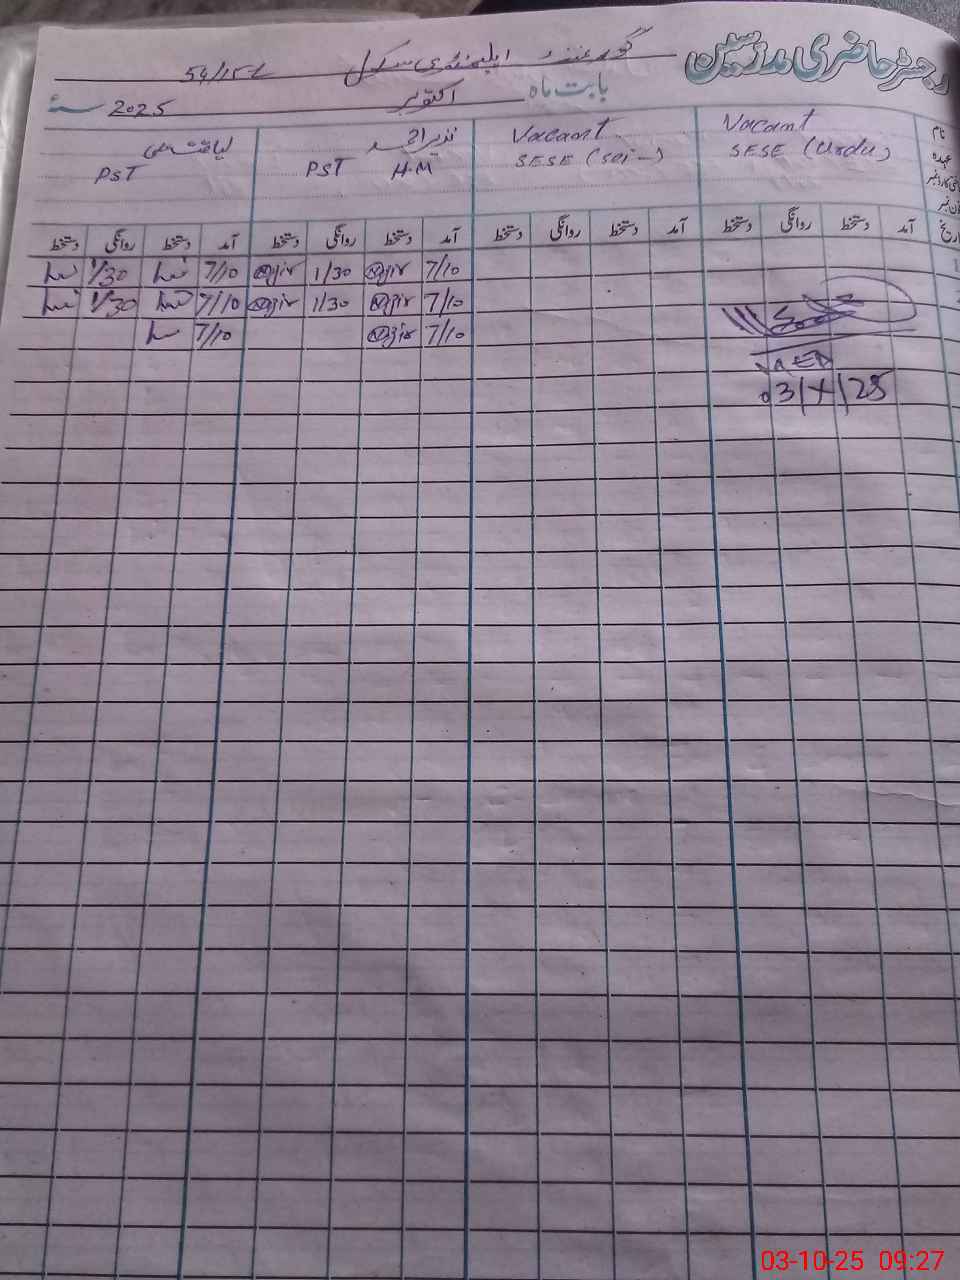 رجسٹر حاضری مدرسین گورنمنٹ ایلیمنٹری سکول 54/15-L
بابت ماہ اکتوبر 2025ء
نام
عہدہ
Vacant
SESE (Urdu)
Vacant
SESE (Sci-)
نذیر احمد
PST H.M
لیاقت علی
PST
تاریخ آمد دستخط روانگی دستخط آمد دستخط روانگی دستخط آمد دستخط روانگی دستخط آمد دستخط روانگی دستخط
7/10 1/30 7/10 1/30
7/10 1/30 7/10 1/30
7/10 7/10
AEO
03/X/25
03-10-25 09:27